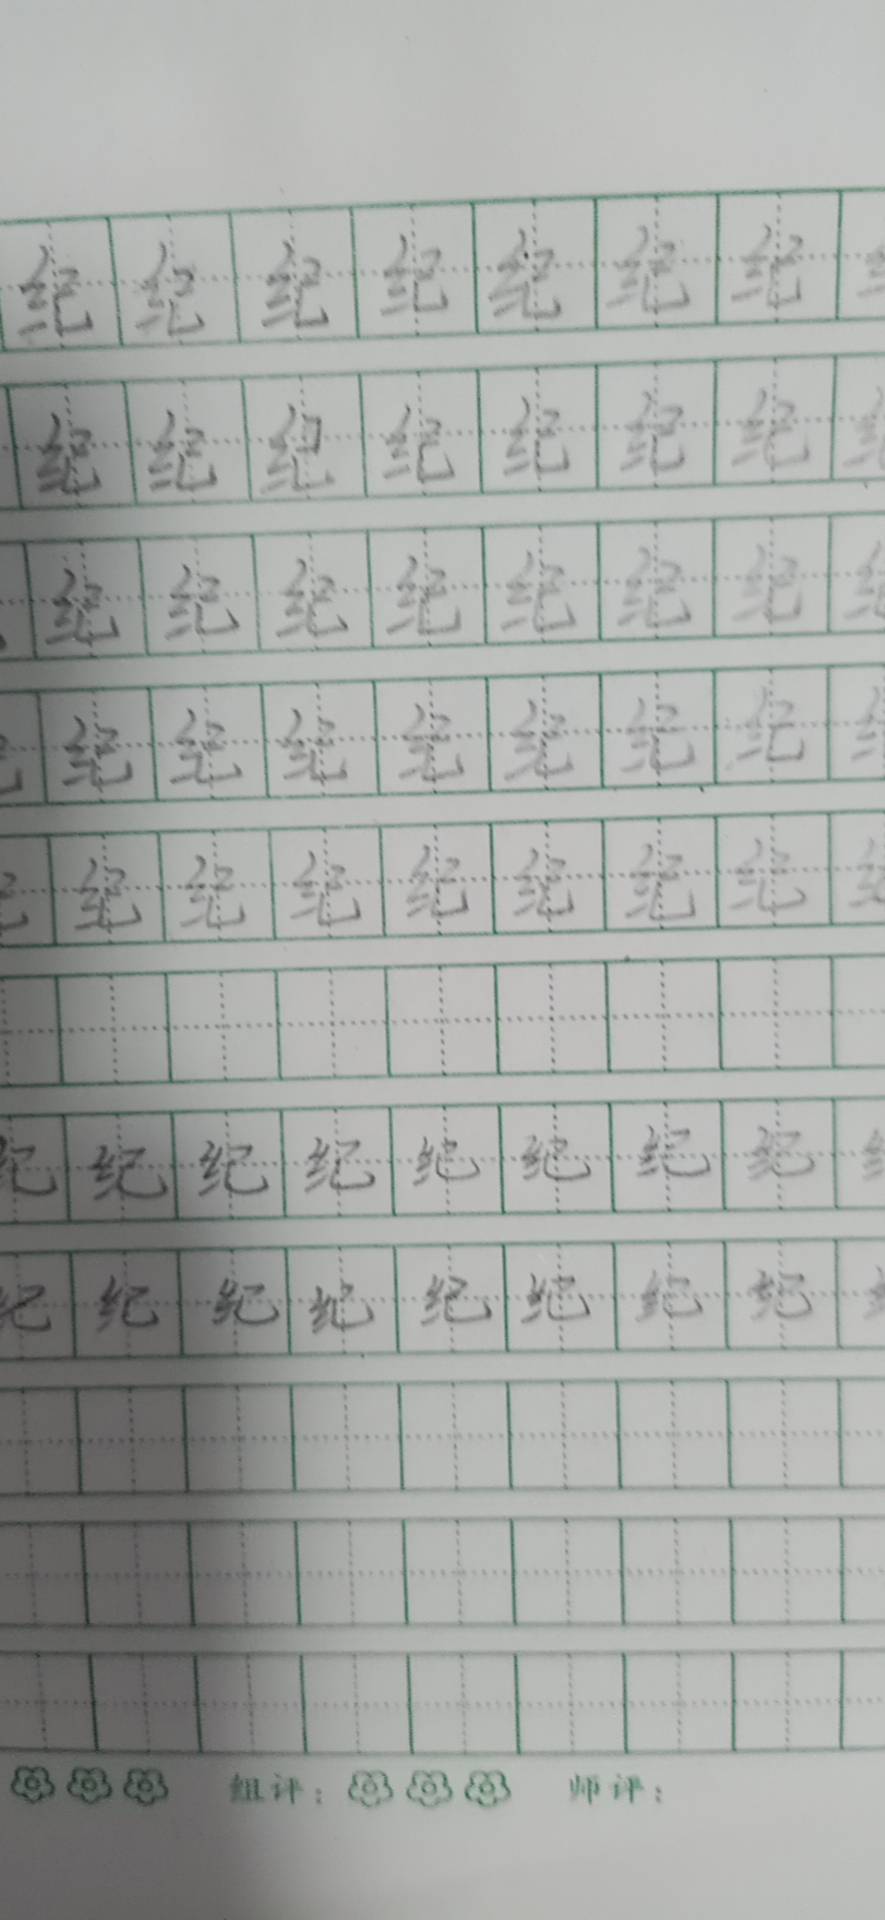 纪纪纪纪纪纪纪
纪纪纪纪纪纪纪
纪纪纪纪纪纪纪
纪纪纪纪纪纪纪
纪纪纪纪纪纪纪
纪纪纪纪纪纪纪纪
纪纪纪纪纪纪纪纪
组评： 师评：